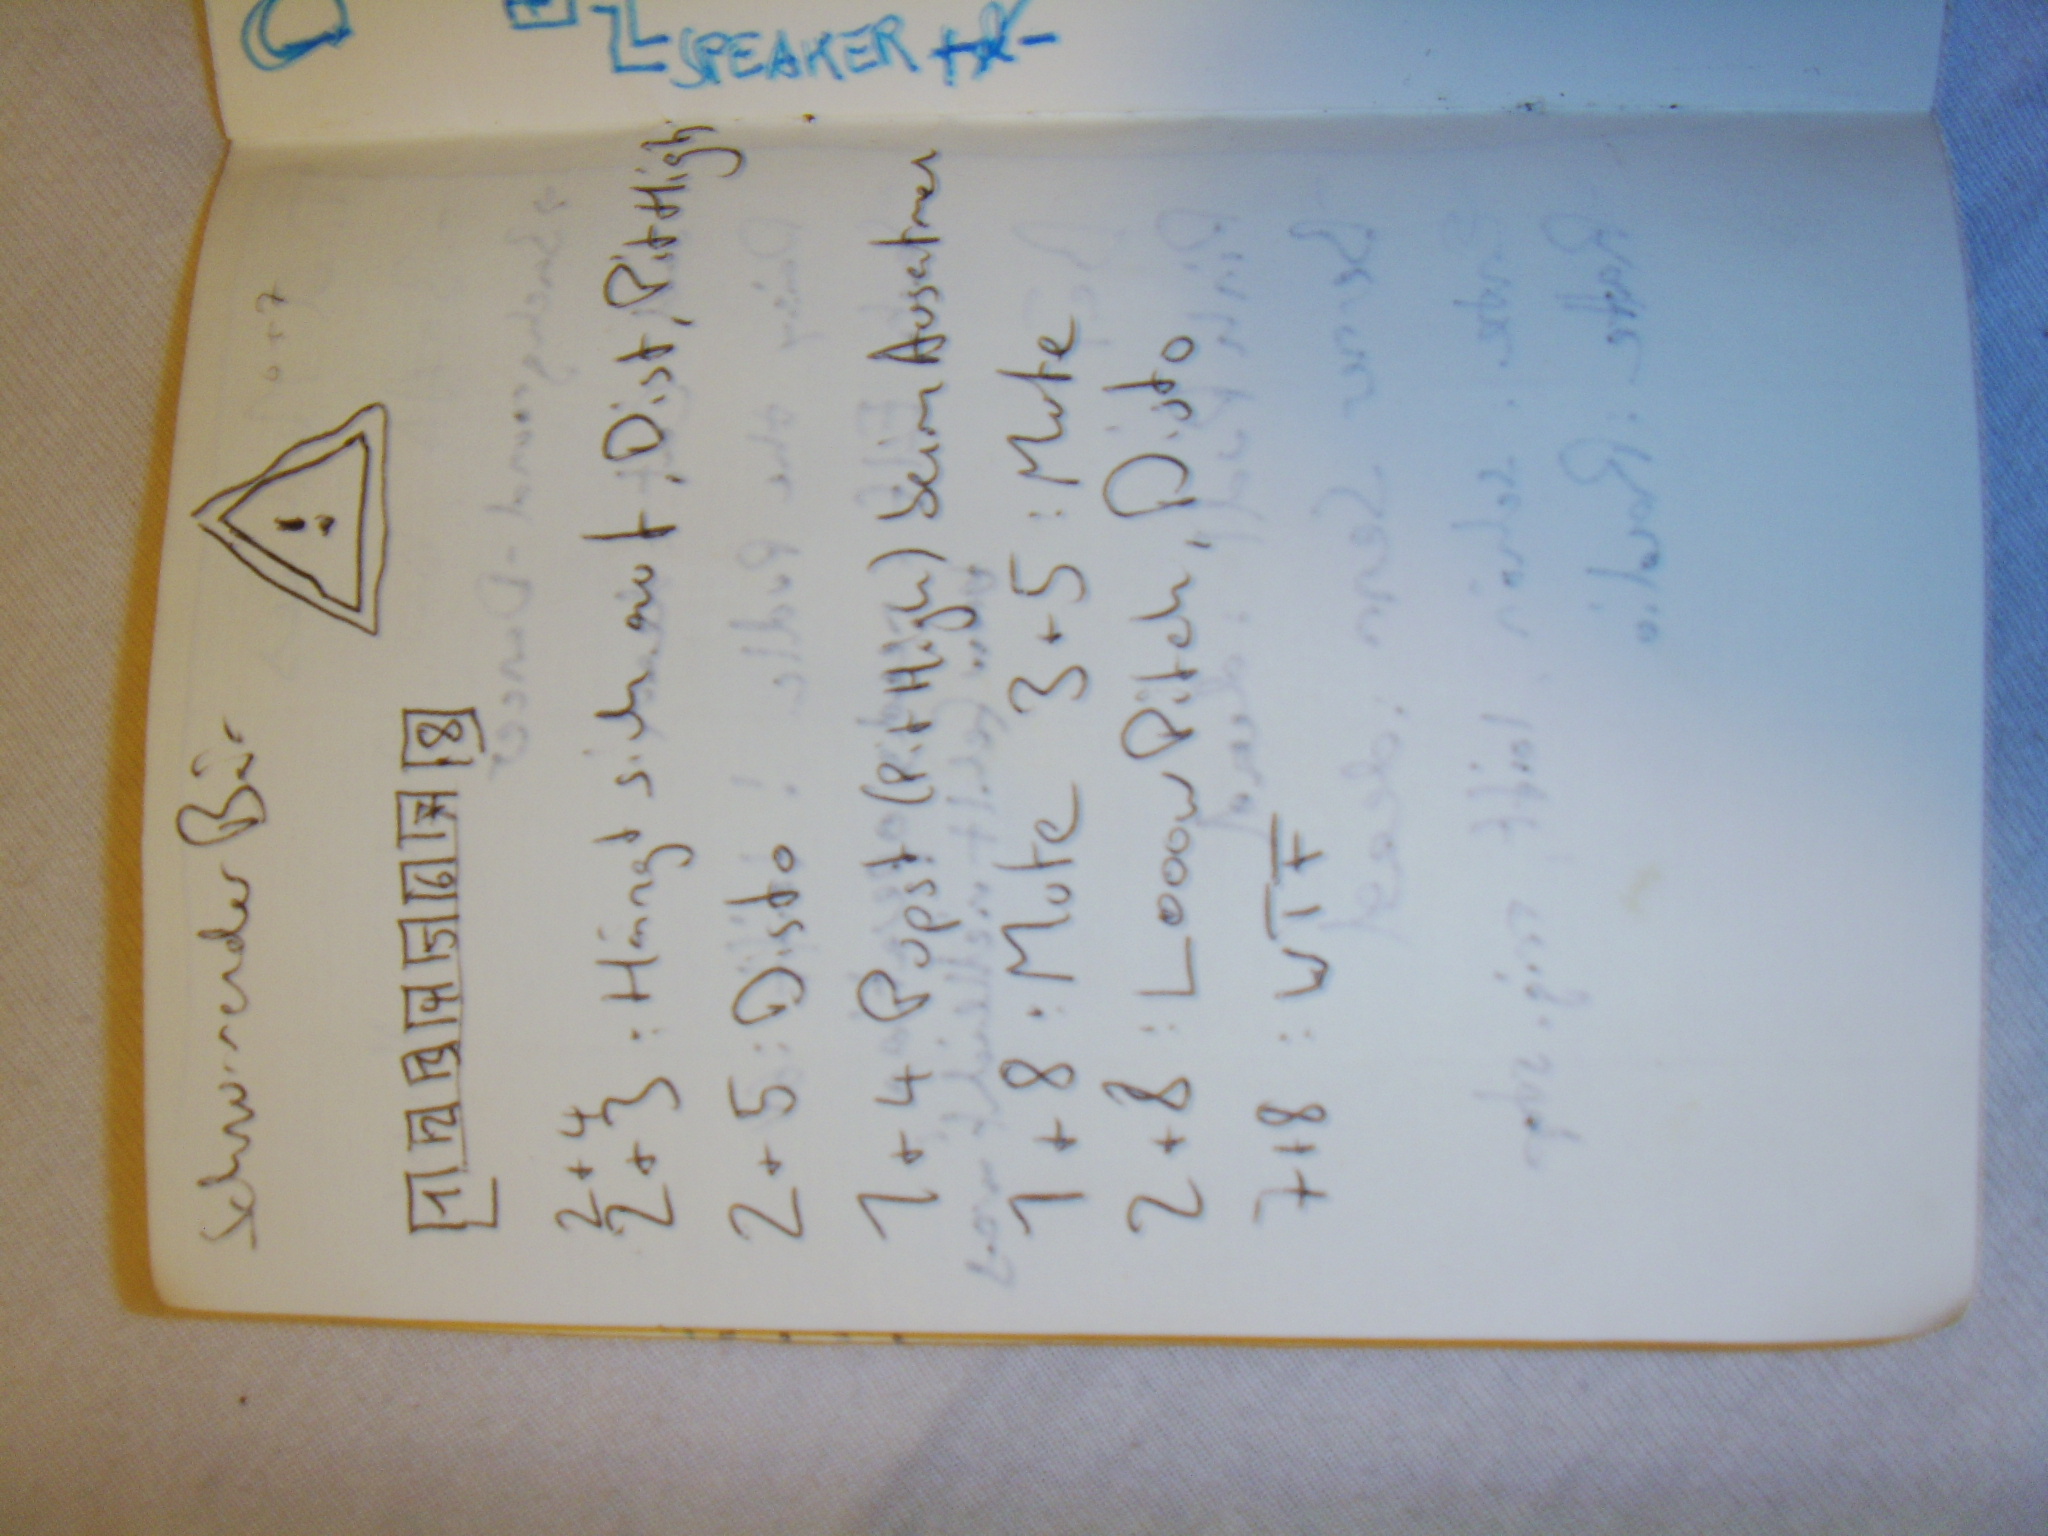 Schnurrender Bär
!
1 2 3 4 5 6 7 8
2+4
2+3 : Hängt sich auf, Dist, Pit High
2+5 : Disto
1+4 Pupst (Pit High) beim Ausatmen
1+8 : Mute 3+5 : Mute
2+8 : Looow Pitch, Disto
7+8 : WTF
SPEAKER + -